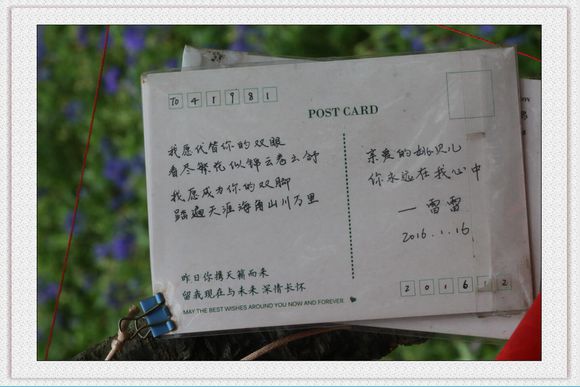 TO 4 1 9 8 1
POST CARD
我愿代替你的双眼
看尽繁花似锦云卷云舒
我愿成为你的双脚
踏遍天涯海角山川万里
昨日你携天籁而来
留我现在与未来 深情长怀
MAY THE BEST WISHES AROUND YOU NOW AND FOREVER.
亲爱的姚贝儿
你永远在我心中
— 雷雷
2016.1.16
2 0 1 6 1 2